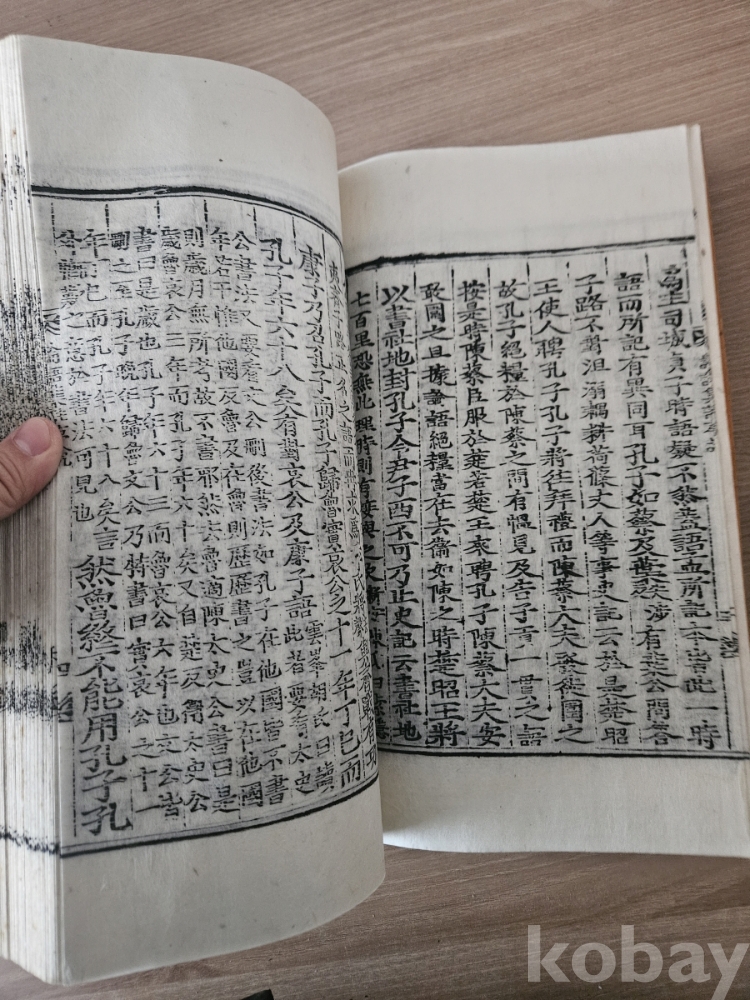 爲主司城貞子時語疑不然蓋語孟所記本皆此一時
語而所記有異同耳孔子如蔡及葉涉有葉公問答
子路不對沮溺耦耕荷蓧丈人等事史記云於是楚昭
王使人聘孔子孔子將往拜禮而陳蔡大夫發徒圍之
故孔子絶糧於陳蔡之間有慍見及告子貢一貫之語
按是時陳蔡臣服於楚若楚王來聘孔子陳蔡大夫安
敢圍之且據論語絶糧當在去衛如陳之時楚昭王將
以書社地封孔子令尹子西不可乃止史記云書社地
七百里恐無此理時則有接輿之
康子乃召孔子而孔子歸魯實哀公之十一年丁巳而
孔子年六十八矣有對哀公及康子語雲峯胡氏曰讀
此若要看太史
公書法又要看文公刪後書法如孔子在他國皆不書
年若干惟他國反魯及在魯則歷歷書之豈以在他國
則歲月無所考故不書邪然去魯適陳太史公書曰是
歲魯哀公三年而孔子年六十矣又自楚反衛太史公
書曰是歲也孔子年六十三而魯哀公六年也文公皆
刪之至孔子晚年歸魯文公乃特書曰實哀公之十一
年丁巳而孔子年六十八矣言
之意於書法可見也然魯終不能用孔子孔
kobay